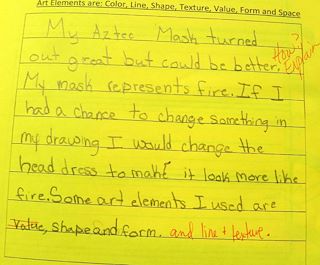 Art Elements are: Color, Line, Shape, Texture, Value, Form and Space
My Aztec Mask turned
out great but could be better. How? Explain
My mask represents fire. If I
had a chance to change something in
my drawing I would change the
head dress to make it look more like
fire. Some art elements I used are
Value, shape and form. and line + texture.